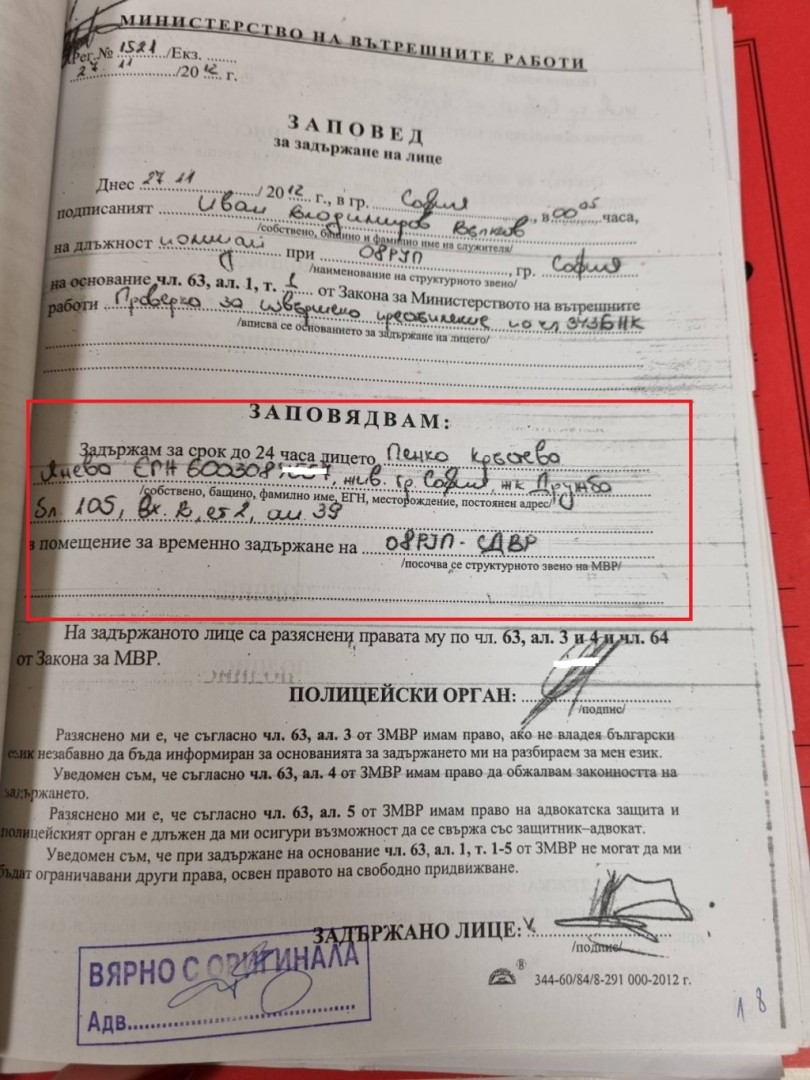 МИНИСТЕРСТВО НА ВЪТРЕШНИТЕ РАБОТИ
Рег.№ 1521 /Екз. ......
27 11 /2012 г.
ЗАПОВЕД
за задържане на лице
Днес 27.11 / 2012 г., в гр. София, в 00 05 часа,
подписаният Иван Владимиров
/собствено, бащино и фамилно име на служителя/
на длъжност полицай при 08РУП, гр. София
/наименование на структурното звено/
на основание чл. 63, ал. 1, т. 1 от Закона за Министерството на вътрешните
работи Проверка за извършено престъпление по чл 343Б НК
/вписва се основанието за задържане на лицето/
ЗАПОВЯДВАМ:
Задържам за срок до 24 часа лицето Пенко
ЕГН, жив. гр. София, жк Дружба
/собствено, бащино, фамилно име, ЕГН, месторождение, постоянен адрес/
бл 105, вх. В, ет 2, ап. 39
в помещение за временно задържане на 08РУП-СДВР
/посочва се структурното звено на МВР/
На задържаното лице са разяснени правата му по чл. 63, ал. 3 и 4 и чл. 64
от Закона за МВР.
ПОЛИЦЕЙСКИ ОРГАН:
/подпис/
Разяснено ми е, че съгласно чл. 63, ал. 3 от ЗМВР имам право, ако не владея български
език незабавно да бъда информиран за основанията за задържането ми на разбираем за мен език.
Уведомен съм, че съгласно чл. 63, ал. 4 от ЗМВР имам право да обжалвам законността на
задържането.
Разяснено ми е, че съгласно чл. 63, ал. 5 от ЗМВР имам право на адвокатска защита и
полицейският орган е длъжен да ми осигури възможност да се свържа със защитник–адвокат.
Уведомен съм, че при задържане на основание чл. 63, ал. 1, т. 1-5 от ЗМВР не могат да ми
бъдат ограничавани други права, освен правото на свободно придвижване.
ЗАДЪРЖАНО ЛИЦЕ:
/подпис/
ВЯРНО С ОРИГИНАЛА
Адв.
® 344-60/84/8-291 000-2012 г.
18